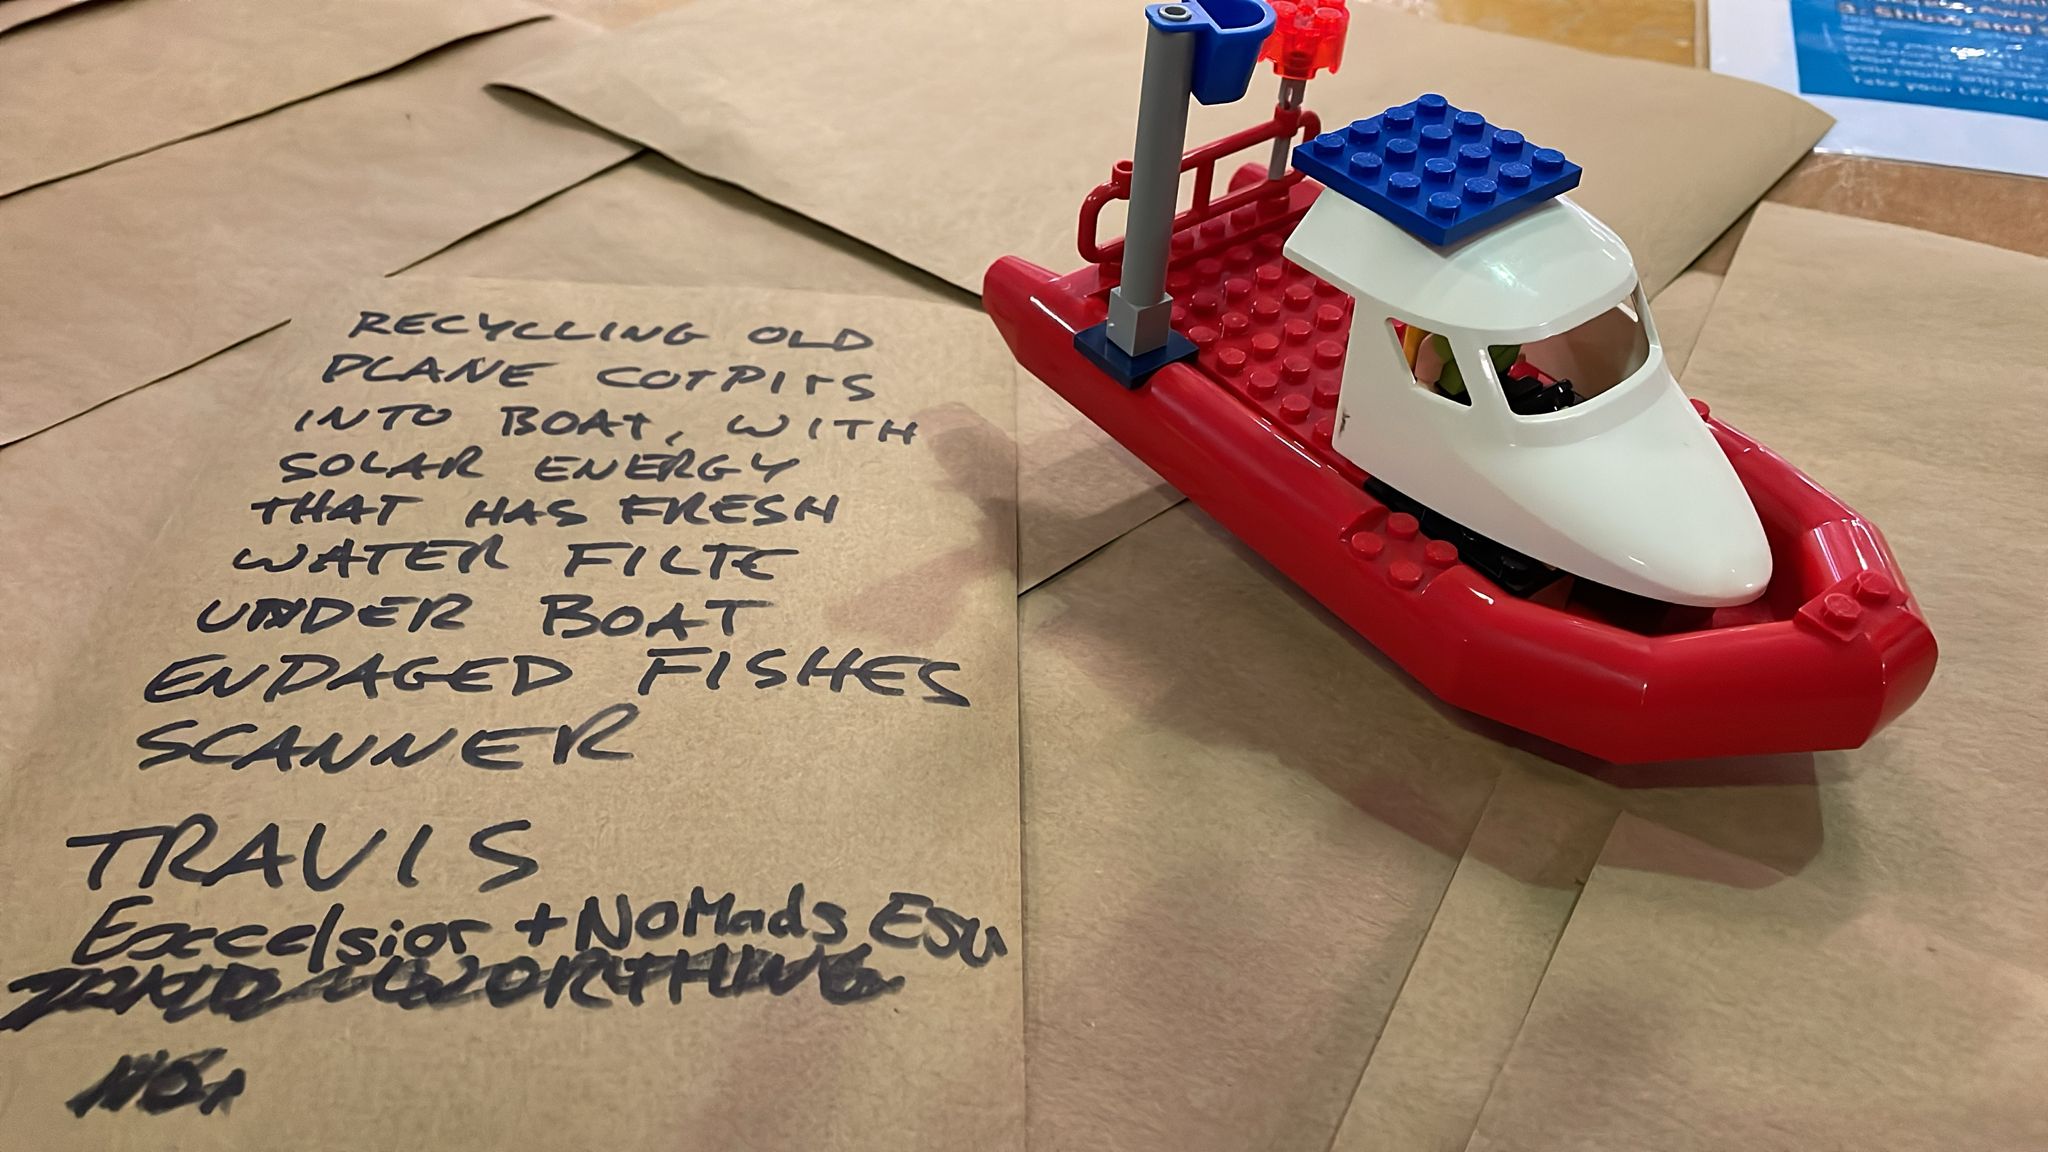 RECYLLING OLD
PLANE COTPITS
INTO BOAT, WITH
SOLAR ENERGY
THAT HAS FRESH
WATER FILTE
UNDER BOAT
ENDAGED FISHES
SCANNER
TRAVIS
Excelsior + NoMads ESU
WORTHING